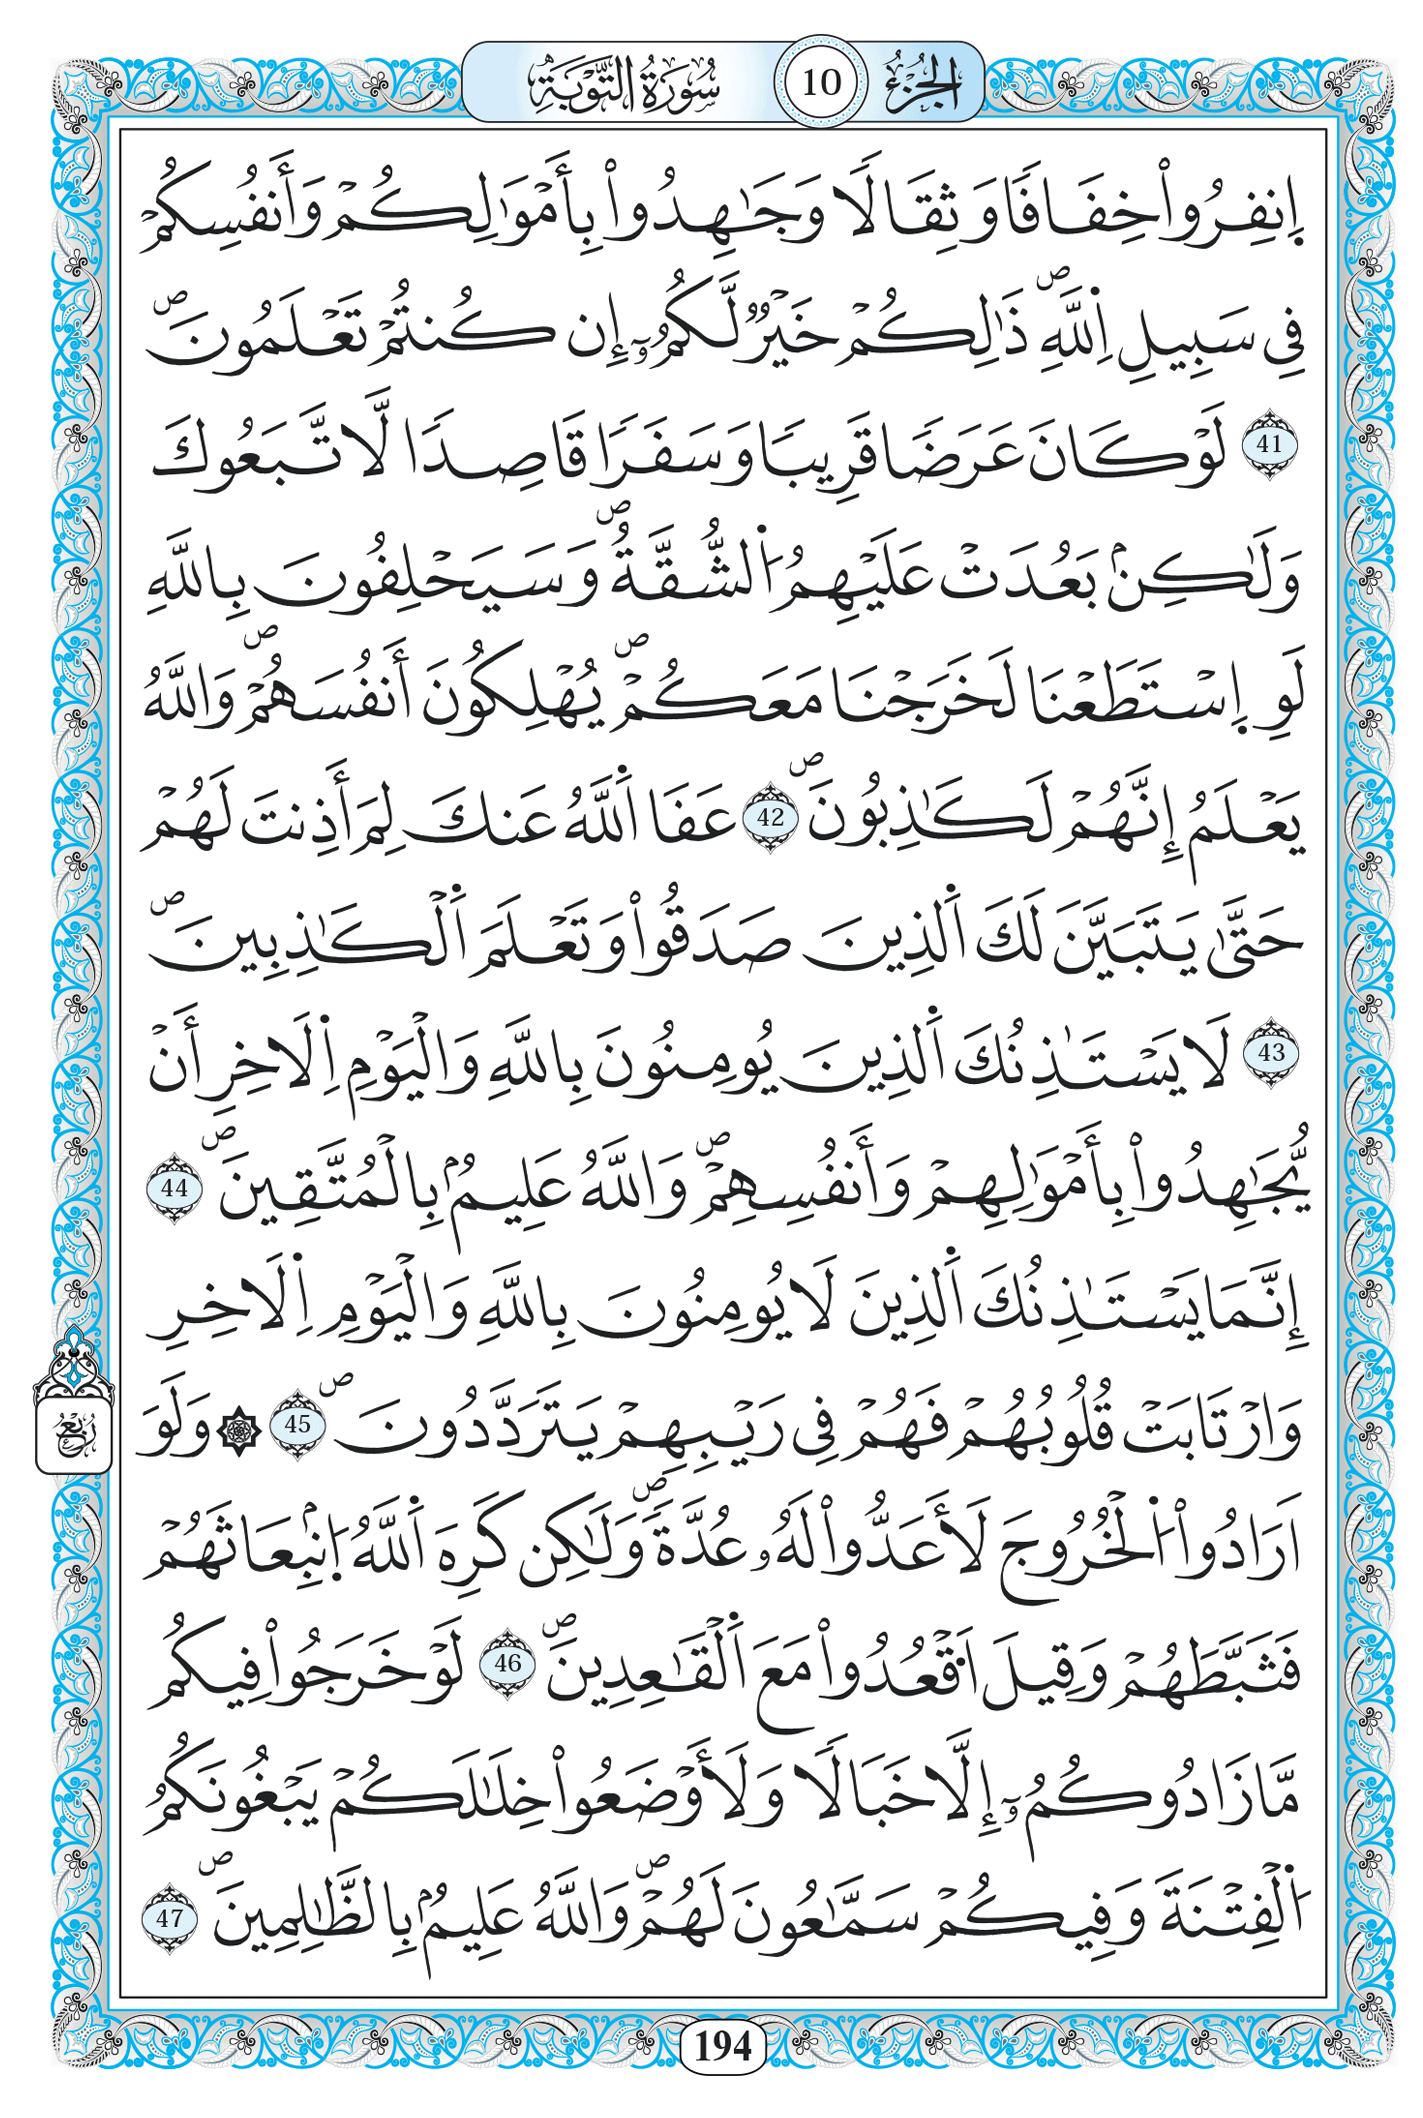 الجزء 10 سورة التوبة
اِ۪نفِرُواْ خِفَافٗا وَثِقَالٗا وَجَٰهِدُواْ بِأَمْوَٰلِكُمْ وَأَنفُسِكُمْ
فِي سَبِيلِ اِ۬للَّهِۖ ذَٰلِكُمْ خَيْرٞ لَّكُمُۥٓ إِن كُنتُمْ تَعْلَمُونَۖ
41 لَوْ كَانَ عَرَضٗا قَرِيبٗا وَسَفَرٗا قَاصِدٗا لَّاتَّبَعُوكَ
وَلَٰكِنۢ بَعُدَتْ عَلَيْهِمُ اُ۬لشُّقَّةُۖ وَسَيَحْلِفُونَ بِاللَّهِ
لَوِ اِ۪سْتَطَعْنَا لَخَرَجْنَا مَعَكُمْۖ يُهْلِكُونَ أَنفُسَهُمْۖ وَاللَّهُ
يَعْلَمُ إِنَّهُمْ لَكَٰذِبُونَۖ 42 عَفَا اَ۬للَّهُ عَنكَ لِمَ أَذِنتَ لَهُمْ
حَتَّىٰ يَتَبَيَّنَ لَكَ اَ۬لذِينَ صَدَقُواْ وَتَعْلَمَ اَ۬لْكَٰذِبِينَۖ
43 لَا يَسْتَٰذِنُكَ اَ۬لذِينَ يُومِنُونَ بِاللَّهِ وَالْيَوْمِ اِ۬لَاخِرِ أَنْ
يُّجَٰهِدُواْ بِأَمْوَٰلِهِمْ وَأَنفُسِهِمْۖ وَاللَّهُ عَلِيمُۢ بِالْمُتَّقِينَۖ 44
إِنَّمَا يَسْتَٰذِنُكَ اَ۬لذِينَ لَا يُومِنُونَ بِاللَّهِ وَالْيَوْمِ اِ۬لَاخِرِ
وَارْتَابَتْ قُلُوبُهُمْ فَهُمْ فِي رَيْبِهِمْ يَتَرَدَّدُونَۖ 45 ۞ وَلَوَ
اَرَادُواْ اُ۬لْخُرُوجَ لَأَعَدُّواْ لَهُۥ عُدَّةٗۖ وَلَٰكِن كَرِهَ اَ۬للَّهُ اُ۪نۢبِعَاثَهُمْ
فَثَبَّطَهُمْ وَقِيلَ اَ۟قْعُدُواْ مَعَ اَ۬لْقَٰعِدِينَۖ 46 لَوْ خَرَجُواْ فِيكُم
مَّا زَادُوكُمُۥٓ إِلَّا خَبَالٗا وَلَأَوْضَعُواْ خِلَٰلَكُمْ يَبْغُونَكُمُ
اُ۬لْفِتْنَةَ وَفِيكُمْ سَمَّٰعُونَ لَهُمْۖ وَاللَّهُ عَلِيمُۢ بِالظَّٰلِمِينَۖ 47
ربع
194